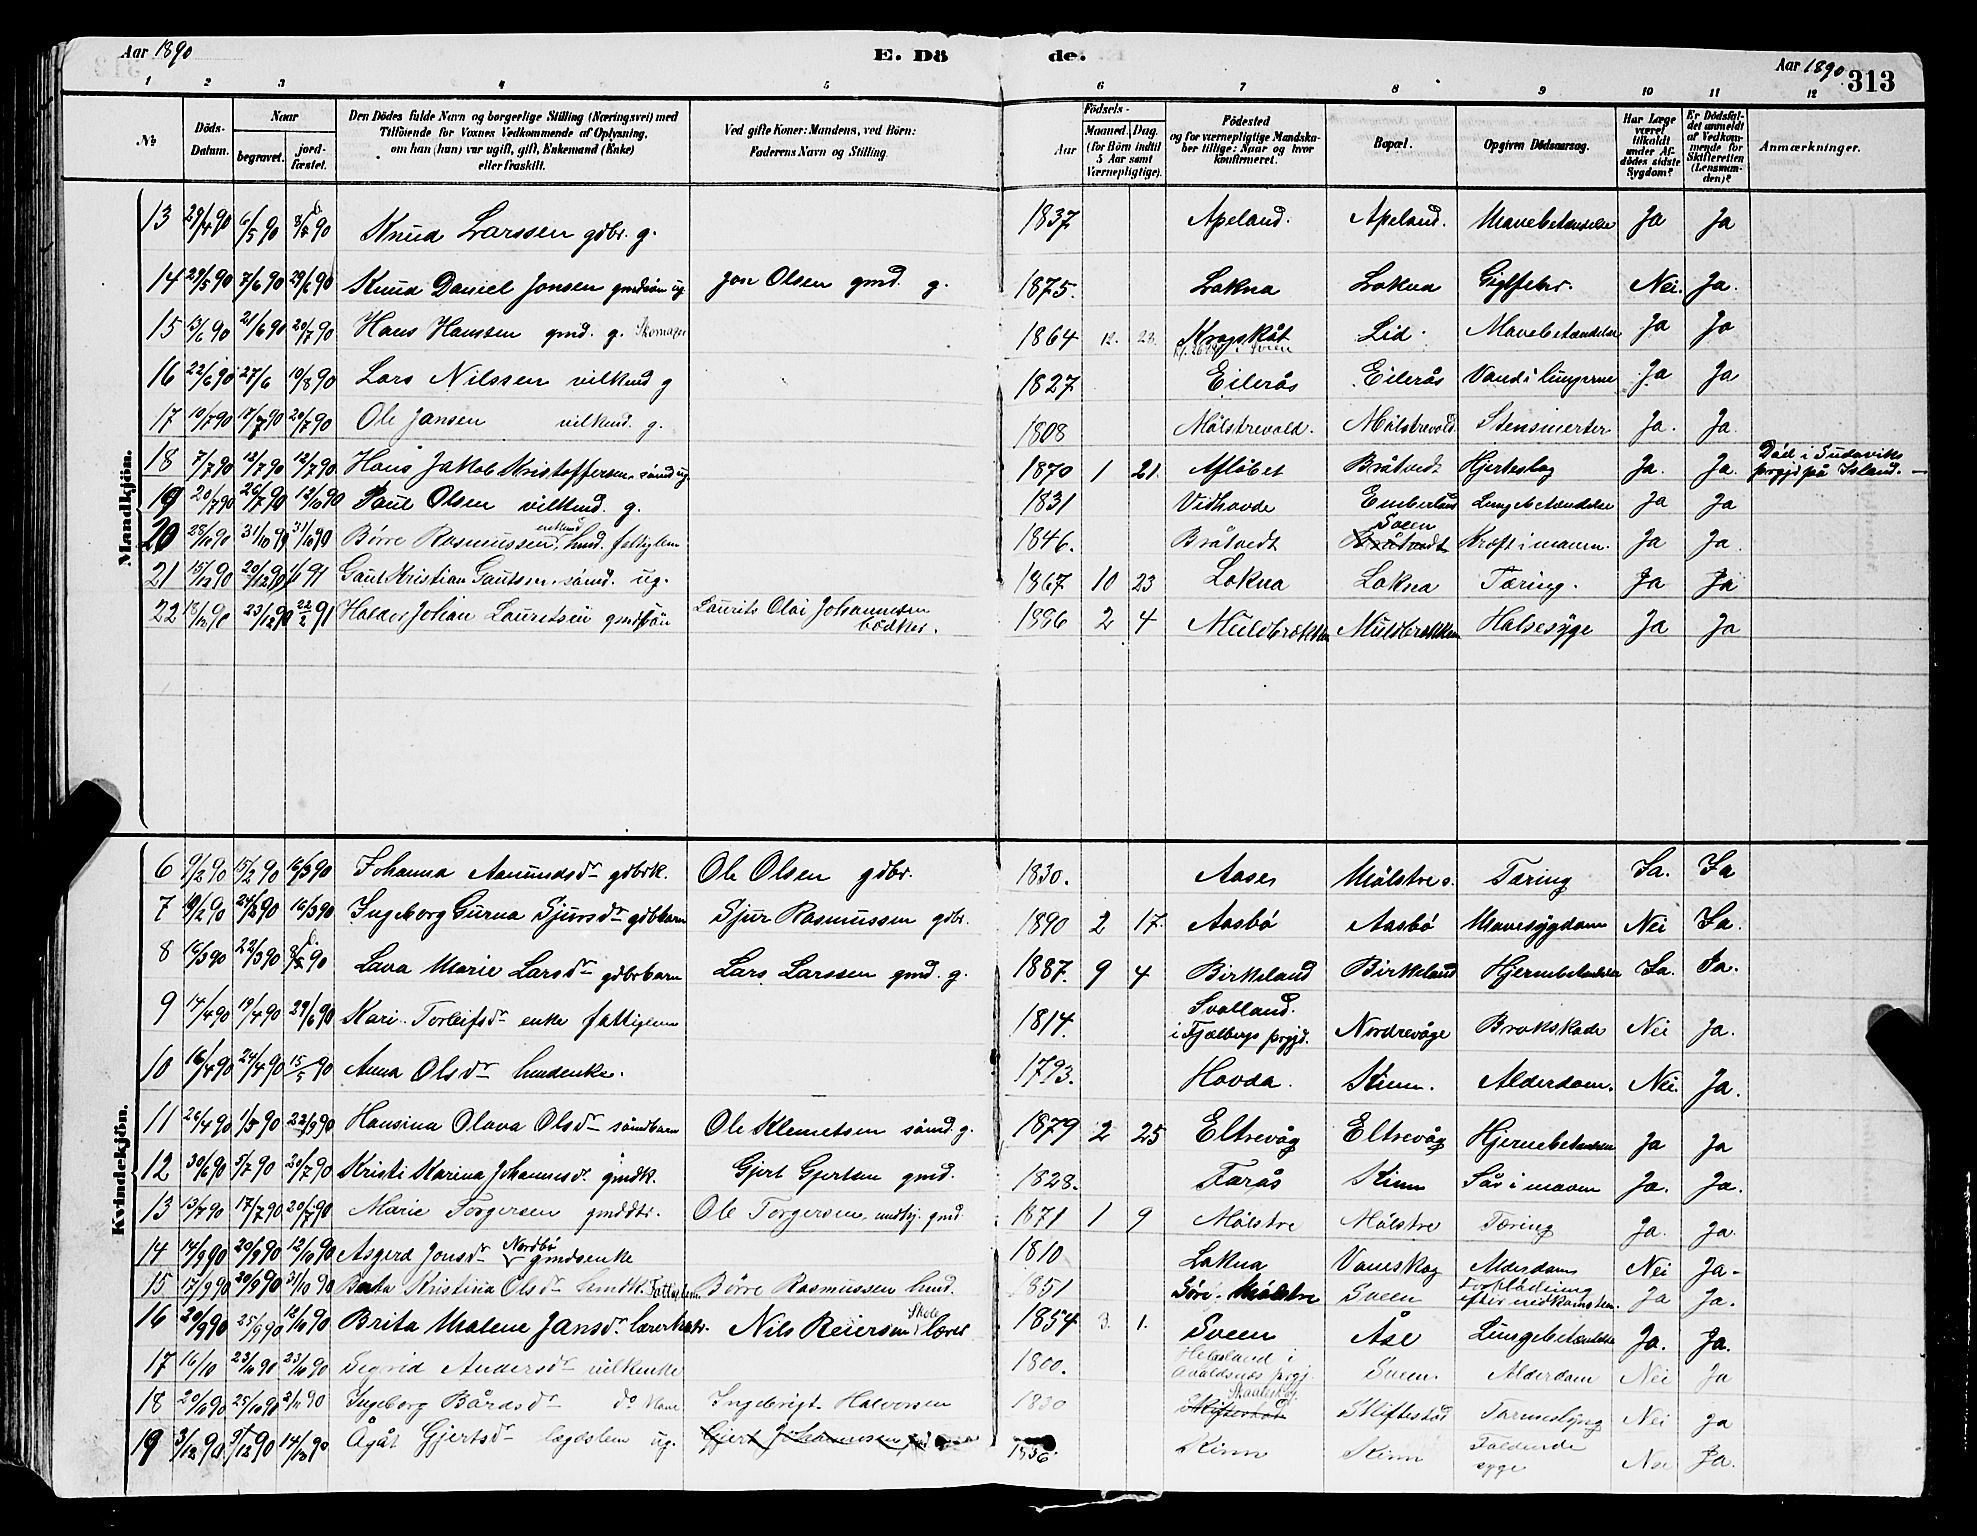 Aar 1890 E. Dö de. Aar 1890 313
1 2 3 4 5 6 7 8 9 10 11 12
No Döds-Datum. Naar begravet. jord-fæstet. Den Dödes fulde Navn og borgerlige Stilling (Næringsvei) med Tilföiende for Voxnes Vedkommende af Oplysning, om han (hun) var ugift, gift, Enkemand (Enke) eller fraskilt. Ved gifte Koner: Mandens, ved Börn: Faderens Navn og Stilling. Födsels- Aar Maaned. Dag. (for Börn indtil 5 Aar samt Værnepligtige). Födested og for værnepligtige Mandskaber tillige: Naar og hvor konfirmeret. Bopæl. Opgiven Dödsaarsag. Har Læge været tilkaldt under Afdödes sidste Sygdom? Er Dödsfaldet anmeldt af Vedkommende for Skifteretten (Lensmanden)? Anmærkninger.
Mandkjön.
13 29/4 90 6/5 90 Knud Larssen gdbr. g. 1837 Apeland. Apeland. Mavebetændelse Ja Ja
14 29/5 90 7/6 90 29/6 90 Knud Daniel Jonsen gmdsön ug Jon Olsen gmd. g. 1875. Lokna Lokna Gigtfeber. Nei. Ja.
15 13/6 90 21/6 90 20/7 90 Hans Hansen gmd. g. Skomager 1864 12. 23. Kragskåt Lid. Mavebetændelse Ja Ja
16 22/6 90 27/6 10/8 90 Lars Nilssen vilkmd g 1827 Eilerås Eilerås Vand i lungerne Ja Ja
17 10/7 90 17/7 90 20/7 90 Ole Jansen vilkmd. g. 1808 Målstrevold. Målstrevold. Stensmerter Ja. Ja.
18 7/7 90 12/7 90 12/7 90 Hans Jakob Kristoffersen sömd ug. 1870 1 21. Aflöbet Bråtvedt Hjerteslag Ja. Ja. Död i Sudaviks prgjd på Island.
19 20/7 90 26/7 90 12/10 90 Paul Olsen vilkmd. g. 1831 Vidhovde Emberland Lungebetændelse Ja Ja
20 28/10 90 31/10 90 31/10 90 Børre Rasmussen, enkmd hmd. fattiglem 1846. Bråtvedt Sveen Bråtvedt Kræft i maven. Ja Ja.
21 15/12 90 20/12 90 1/1 91 Gaut Kristian Gautsen sömd. ug. 1867 10 23 Lokna Lokna Tæring. Ja Ja
22 18/12 90 23/12 90 22/2 91 Haldor Johan Lauritsen gmdsön Laurits Olai Johannesen bödker. 1886 2 4 Muldbrekken Muldbrekken Halsesyge Ja Ja
Kvindekjön.
6 9/2 90 15/2 90 16/3 90 Johanna Aamundsdr gdbrk. Ole Olsen gdbr. 1830. Aases Målstre. Tæring Ja. Ja
7 19/2 90 24/2 90 16/3 90 Ingeborg Gurina Sjursdr gdbbarn Sjur Rasmussen gdbr. 1890 2 17. Aasbö Aasbö Mavesygdom Nei Ja.
8 16/3 90 22/3 90 Lava Marie Larsdr gdbrbarn Lars Larssen gmd. g. 1887. 9 4 Birkeland Birkeland Hjernebetændelse Ja. Ja.
9 14/4 90 19/4 90 29/6 90 Kari Torleifsdr enke fattiglem 1814. Svolland. i Fjælbergs prgjd. Nordrevåge Brokskade Nei Ja.
10 16/4 90 24/4 90 15/5 90 Anna Olsdr hmdenke. 1793. Hovda. Kinn. Alderdom. Nei. Ja.
11 26/4 90 1/5 90 Hansina Olava Olsdr sömdbarn Ole Klemetsen sömd. g. 1879 2 25 Eltrevåg Eltrevåg Hjernebetændelse Ja Ja
12 30/6 90 5/7 90 20/7 90 Kristi Karina Johannesdr gmdk. Gjert Gjertsen gmd. 1828. Farås Kinn Sår i maven Ja. Ja.
13 13/7 90 17/7 90 20/7 90 Marie Torgersen gmddtr. Ole Torgersen, gmd. 1871 1 9 Målstre Målstre Tæring Ja. Ja.
14 14/9 90 20/9 90 12/10 90 Asgerd Jonsdr Nordbö gmdsenke 1810 Lokna Vaneskog Alderdom Nei Ja-
15 17/9 90 20/9 90 31/10 90 Berta Kristina Olsdr hmdk. Fattiglem Børre Rasmussen hmd. 1851 Søre-Målstre Sveen Forblödning efter nedkomsten. Ja Ja.
16 20/9 90 25/9 90 12/10 90 Brita Malene Jansdr. lærer Nils Reiersen Skolelærer 1854 3. 1. Sveen Åse Lungebetændelse Ja. Ja.
17 16/10 23/10 90 23/10 90 Segrid Andersdr vilkenke 1800. i Avaldsnes prgj. Sveen. Alderdom Nei Ja
18 20/10 90 25/10 90 2/11 90 Ingeborg Bårdsdr do Kone Ingebrigt Halvorsen 1830 Skiftestad Skiftestad Nei Ja
19 3/12 90 9/12 90 14/12 90 Ågåt Gjertsdr lægdslem ug. Gjert Johannesen 1856. Kinn Kinn Faldende syge Nei Ja.